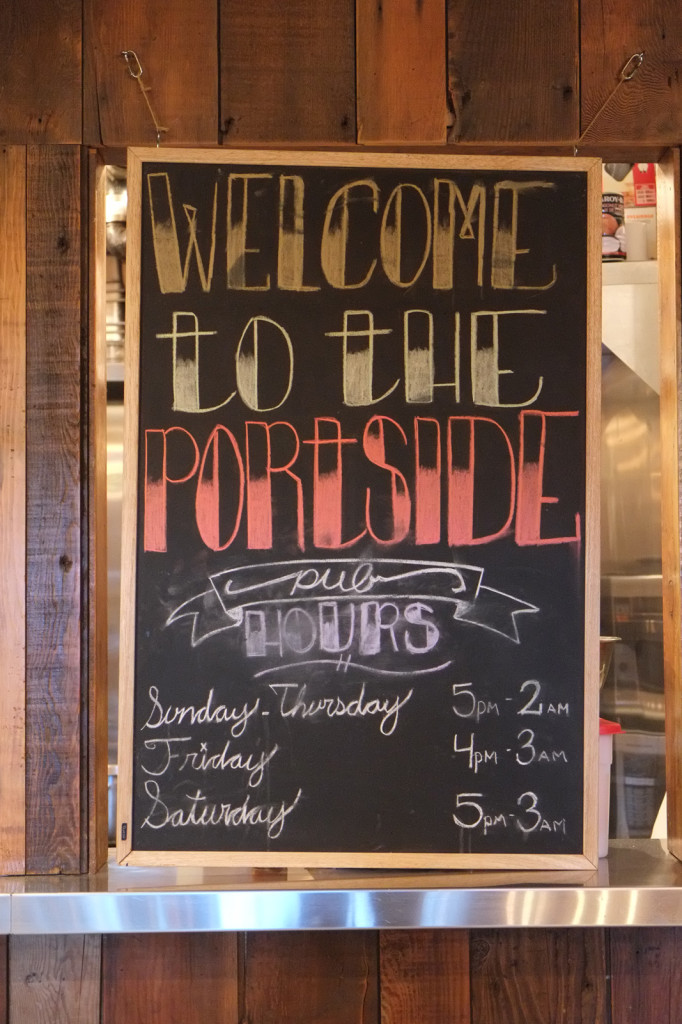 WELCOME
to tHE
PORtSIDE
pub
HOURS
Sunday - Thursday 5PM - 2AM
Friday 4PM - 3AM
Saturday 5PM - 3AM